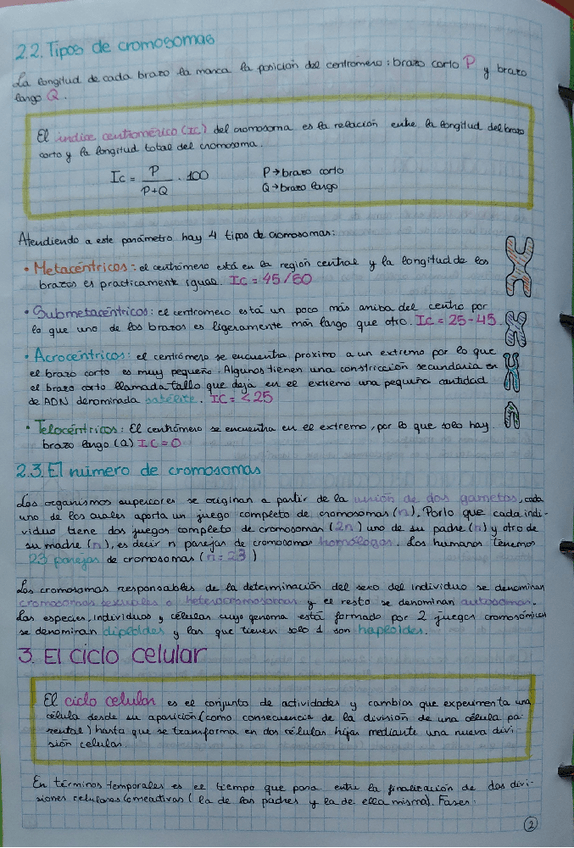 2.2. Tipos de cromosomas
La longitud de cada brazo la marca la posición del centromero: brazo corto P y brazo
largo Q.
El índice centromérico (IC) del cromosoma es la relación entre la longitud del brazo
corto y la longitud total del cromosoma.
Ic = P / P+Q · 100
P → brazo corto
Q → brazo largo
Atendiendo a este parámetro hay 4 tipos de cromosomas:
• Metacéntricos: el centrómero está en la región central y la longitud de los
brazos es practicamente igual. Ic = 45/50
• Submetacéntricos: el centromero está un poco más arriba del centro por
lo que uno de los brazos es ligeramente más largo que otro. Ic = 25-45
• Acrocéntricos: el centrómero se encuentra proximo a un extremo por lo que
el brazo corto es muy pequeño. Algunos tienen una constricción secundaria en
el brazo corto llamada tallo que deja en el extremo una pequeña cantidad
de ADN denominada satélite. IC = <25
• Telocéntricos: El centrómero se encuentra en el extremo, por lo que solo hay
brazo largo (Q) IC = 0
2.3. El número de cromosomas
Los organismos superiores se originan a partir de la unión de dos gametos, cada
uno de los cuales aporta un juego completo de cromosomas (n). Por lo que cada indi-
viduo tiene dos juegos completo de cromosomas (2n) uno de su padre (n) y otro de
su madre (n), es decir n parejas de cromosomas homólogos. Los humanos tenemos
23 parejas de cromosomas (n=23)
Los cromosomas responsables de la determinación del sexo del individuo se denominan
cromosomas sexuales o heterocromosomas y el resto se denominan autosomas.
Las especies, individuos y células cuyo genoma está formado por 2 juegos cromosómicos
se denominan diploides y las que tienen solo 1 son haploides.
3. El ciclo celular
El ciclo celular es el conjunto de actividades y cambios que experimenta una
célula desde su aparición (como consecuencia de la división de una célula pa-
rental) hasta que se transforma en dos células hijas mediante una nueva divi-
sión celular.
En términos temporales es el tiempo que pasa entre la finalización de dos divi-
siones celulares consecutivas (la de los padres y la de ella misma). Fases:
2